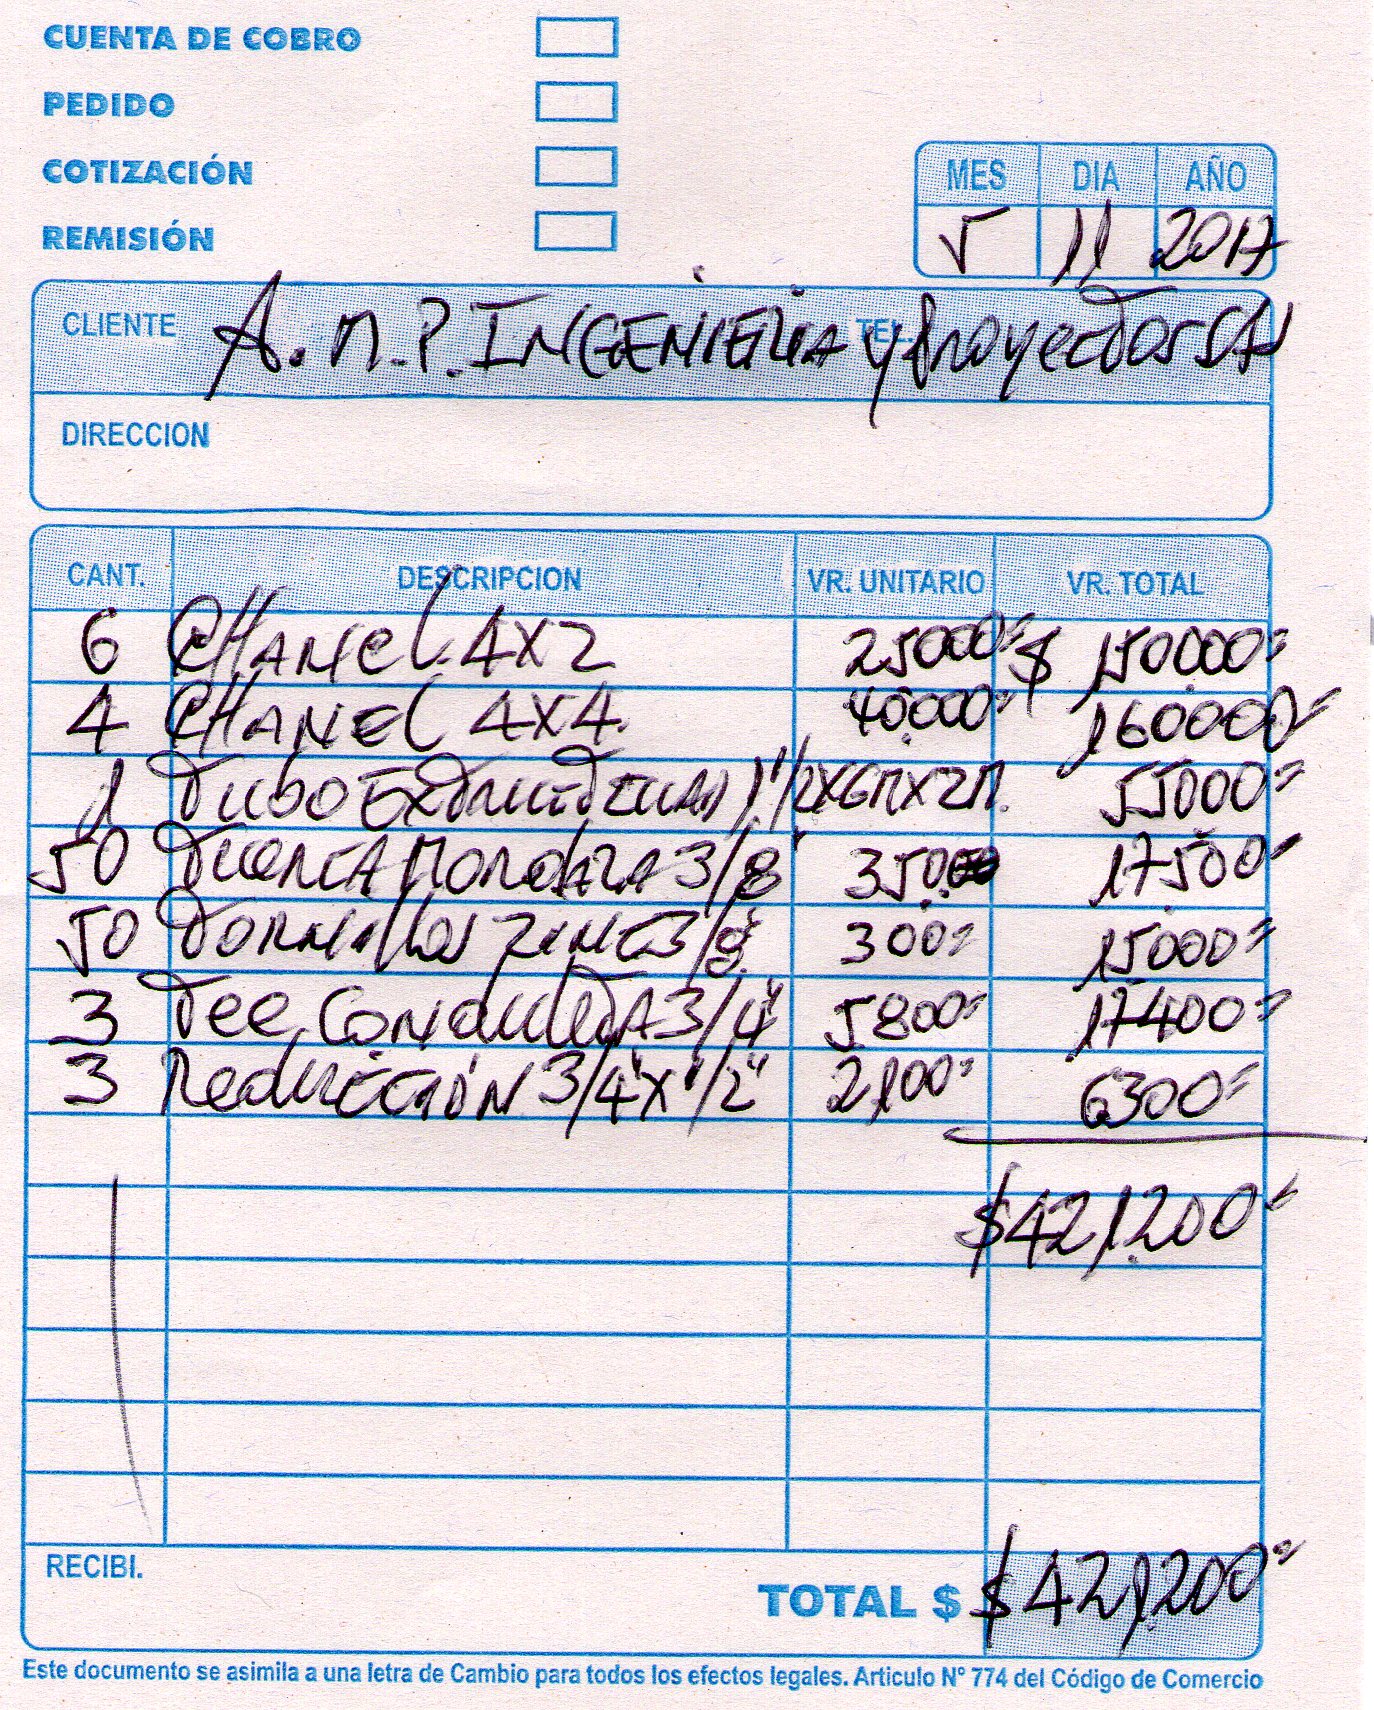 CUENTA DE COBRO
PEDIDO
COTIZACIÓN
REMISIÓN
MES DIA AÑO
5 11 2017
CLIENTE A.M.P. INGENIERIA y Proyectos SA
TEL.
DIRECCION
CANT. DESCRIPCION VR. UNITARIO VR. TOTAL
6 CHANEL 4X2 25000= $ 150.000=
4 CHANEL 4X4. 40.000= 160000=
1 TUBO 1 1/2X6MX2M. 55000=
50 TUERCA MORDAZA 3/8" 350 17.500=
50 TORNILLOS ZINC 3/8 300= 15000=
3 Tee CONDULETA 3/4" 5800= 17400=
3 REDUCCIÓN 3/4"X1/2" 2100= 6300=
$421.200=
RECIBI.
TOTAL $ $421.200=
Este documento se asimila a una letra de Cambio para todos los efectos legales. Articulo Nº 774 del Código de Comercio